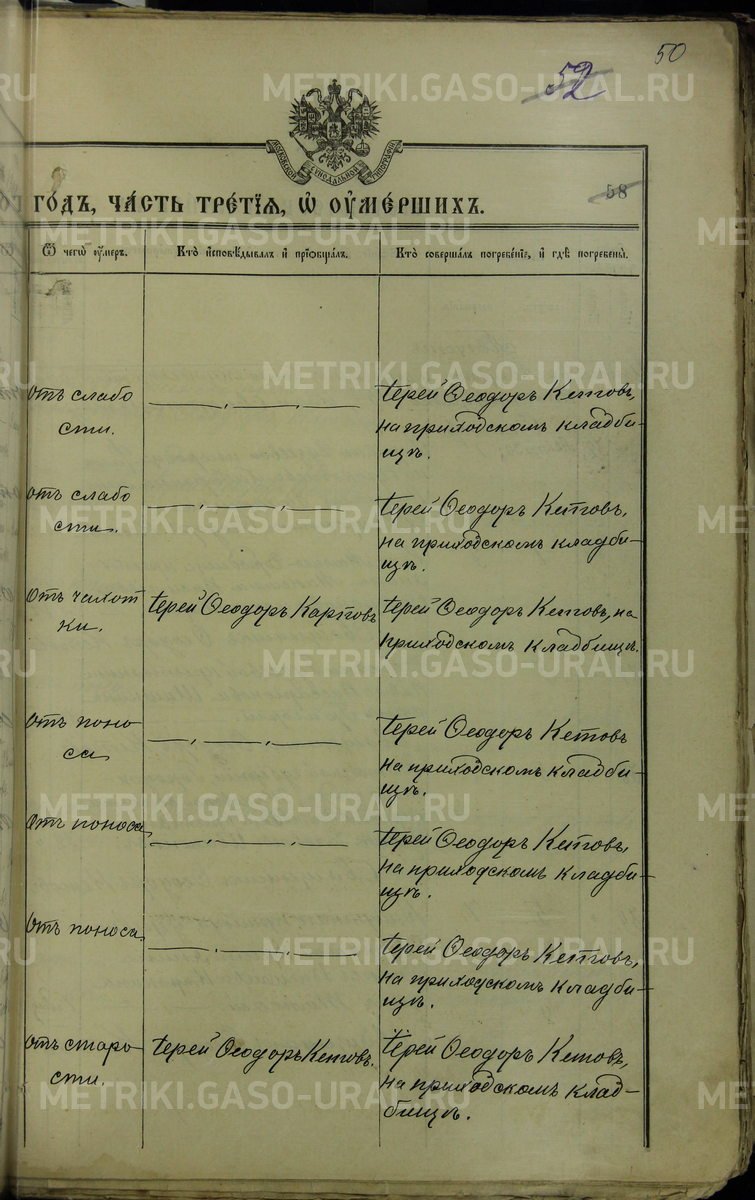 50
52
58
МОСКОВСКОЙ СѴНОДАЛЬНОЙ ТИПОГРАФІИ
ГОДЪ, ЧАСТЬ ТРЕТІЯ, Ѡ ОУМЕРШИХЪ.
Ѿ чегѡ оумеръ.
Кто исповѣдывалъ и пріобщалъ.
Кто совершалъ погребеніе, и гдѣ погребены.
отъ слабо
сти.
Іерей Ѳеодоръ Кетовъ,
на приходскомъ кладби-
щѣ.
отъ слабо
сти.
Іерей Ѳеодоръ Кетовъ,
на приходскомъ кладби-
щѣ.
Отъ чахот
ки.
Іерей Ѳеодоръ Карповъ
Іерей Ѳеодоръ Кетовъ, на
приходскомъ кладбищѣ.
Отъ поно-
са
Іерей Ѳеодоръ Кетовъ
на приходскомъ кладби-
щѣ.
Отъ поноса
Іерей Ѳеодоръ Кетовъ,
на приходскомъ кладби-
щѣ.
Отъ поноса.
Іерей Ѳеодоръ Кетовъ,
на приходскомъ кладби-
щѣ.
отъ старо-
сти.
Іерей Ѳеодоръ Кетовъ.
Іерей Ѳеодоръ Кетовъ,
на приходскомъ клад-
бищѣ.
METRIKI.GASO-URAL.RU